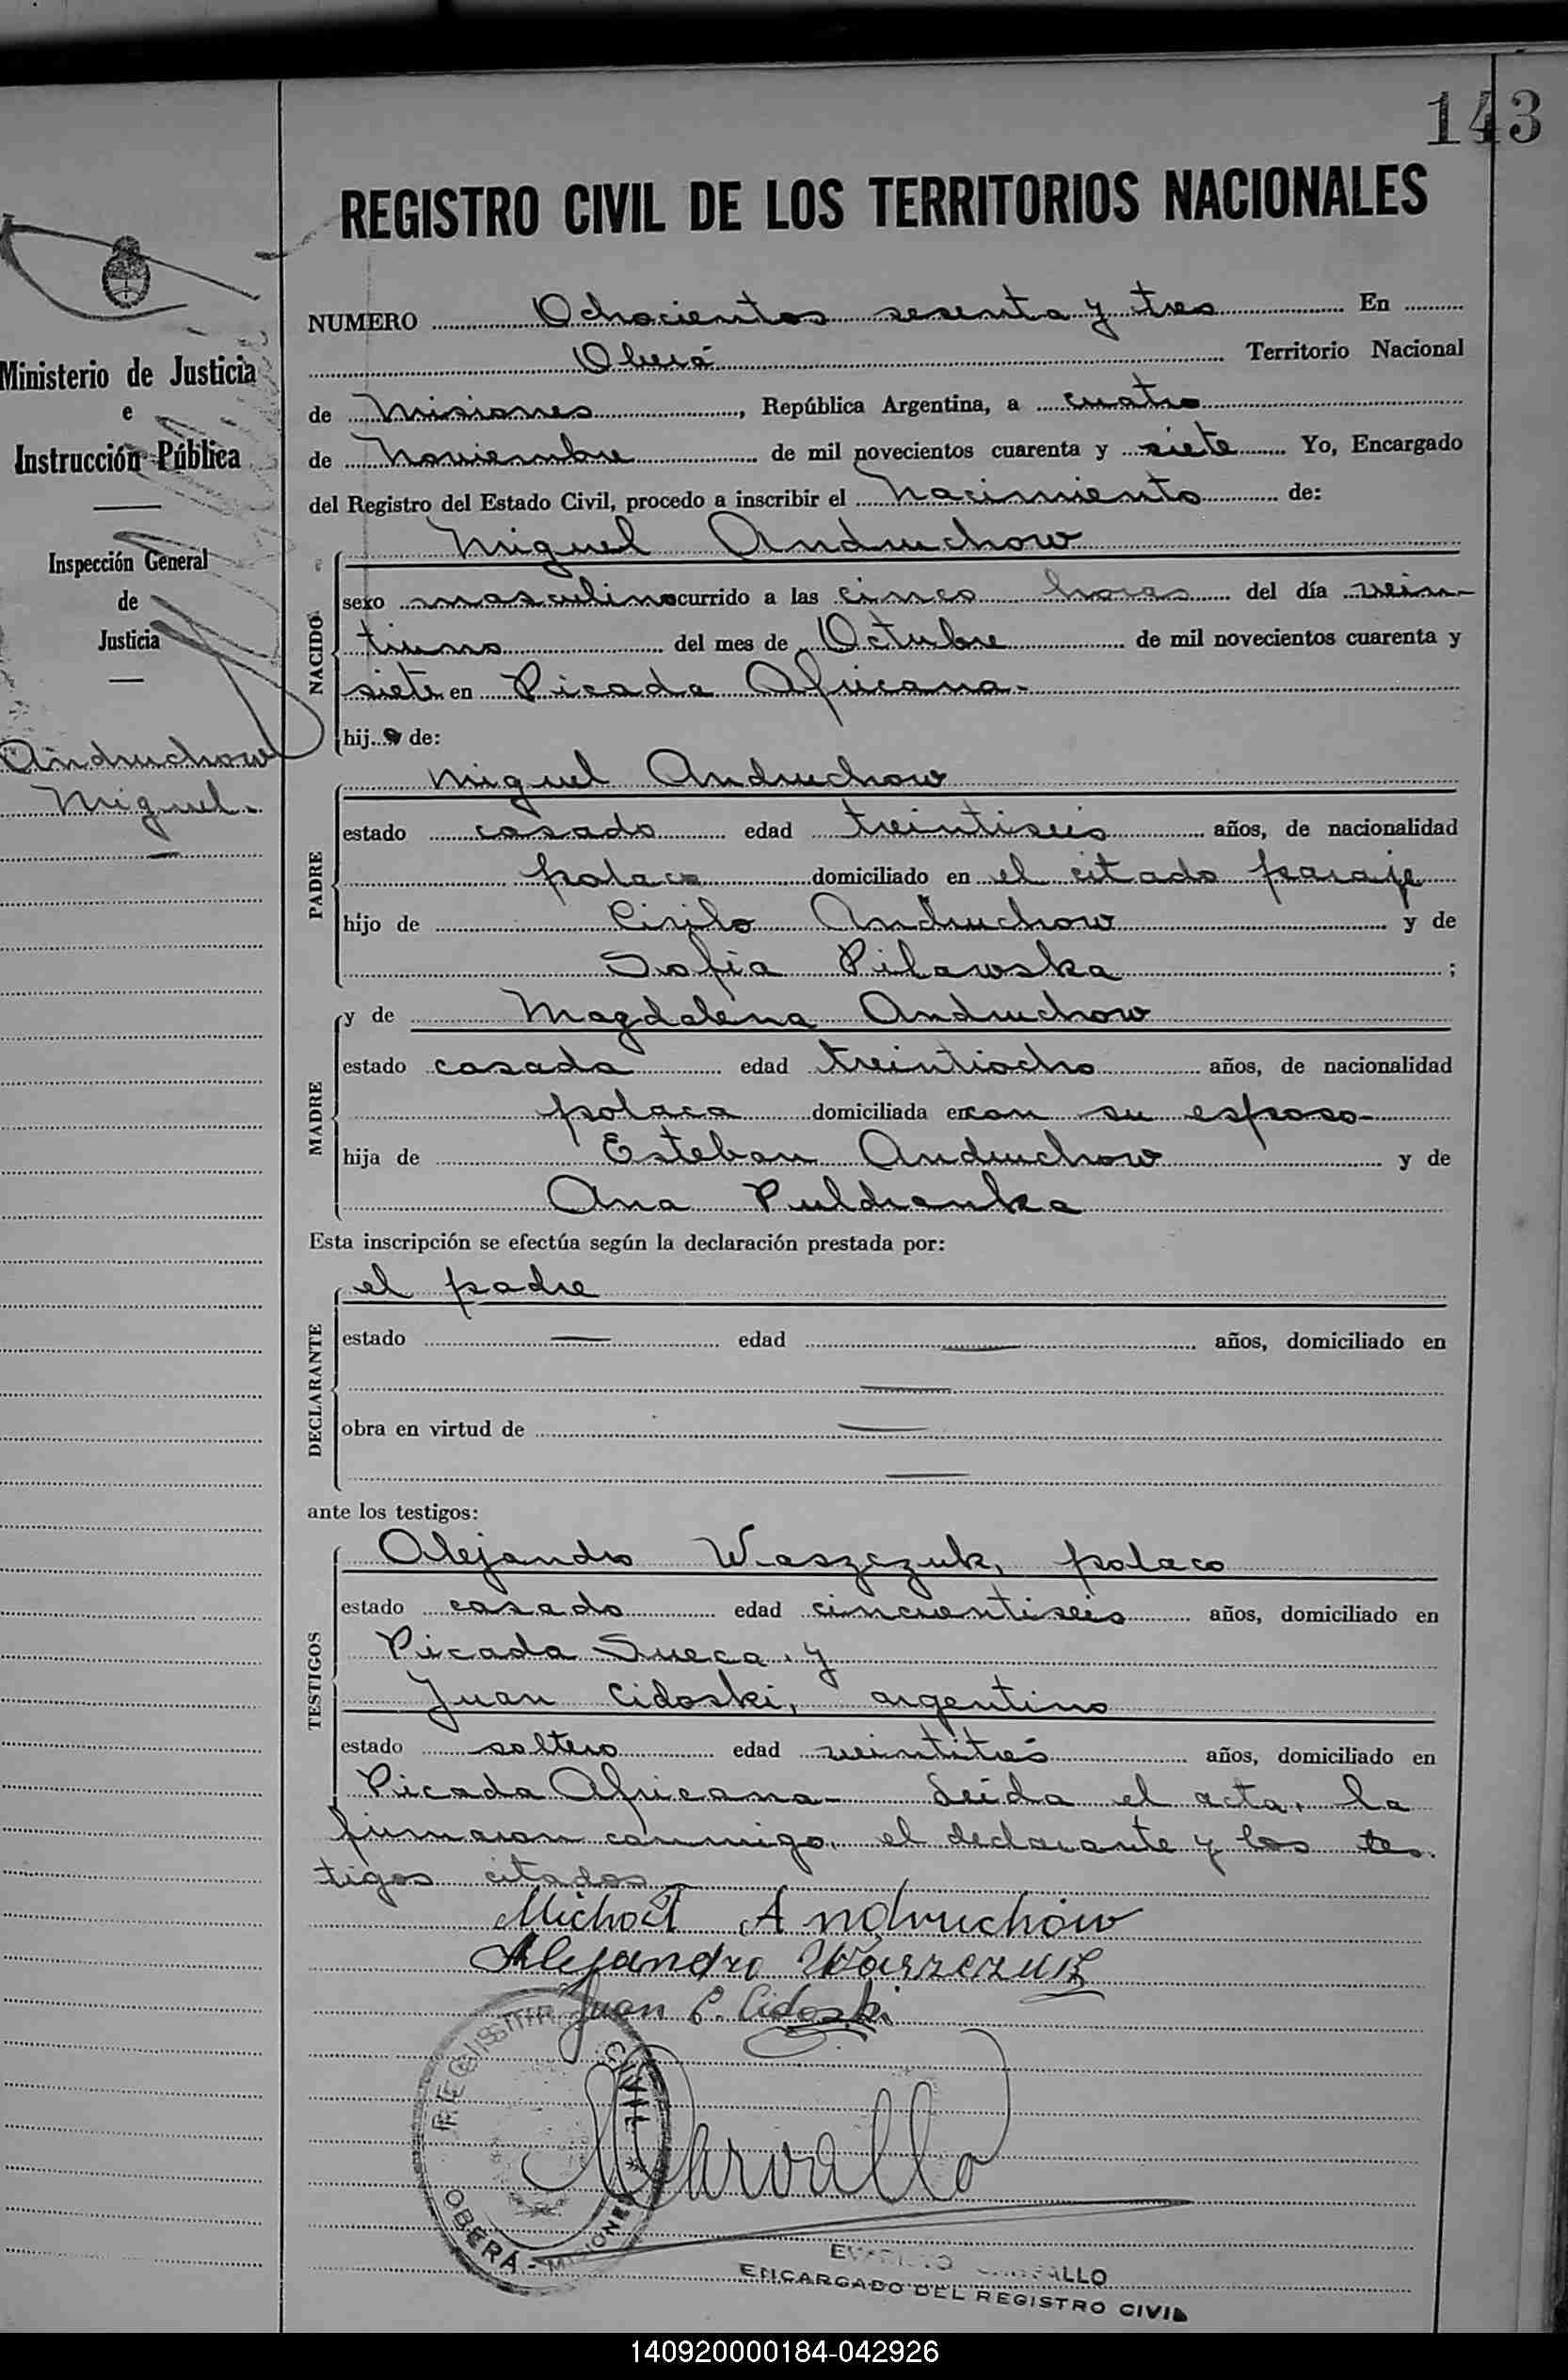 143
REGISTRO CIVIL DE LOS TERRITORIOS NACIONALES
NUMERO Ochocientos sesenta y tres En
Oberá Territorio Nacional
de Misiones, República Argentina, a cuatro
de Noviembre de mil novecientos cuarenta y siete Yo, Encargado
del Registro del Estado Civil, procedo a inscribir el Nacimiento de:
Ministerio de Justicia
e
Instrucción Pública
Inspección General
de
Justicia
Andruchow
Miguel.
NACIDO
Miguel Andruchow
sexo masculino ocurrido a las cinco horas del día vein-
tiuno del mes de Octubre de mil novecientos cuarenta y
siete en Picada Africana.-
hijo de:
PADRE
Miguel Andruchow
estado casado edad treintiseis años, de nacionalidad
polaca domiciliado en el citado paraje
hijo de Cirilo Andruchow y de
Sofia Pilawska ;
MADRE
y de Magdalena Andruchow
estado casada edad treintiocho años, de nacionalidad
polaca domiciliada en con su esposo-
hija de Esteban Andruchow y de
Ana Puldranka
Esta inscripción se efectúa según la declaración prestada por:
DECLARANTE
el padre
estado — edad — años, domiciliado en
—
obra en virtud de —
—
ante los testigos:
TESTIGOS
Alejandro Waszczuk, polaco
estado casado edad cincuentiseis años, domiciliado en
Picada Sueca, y
Juan Cidoski, argentino
estado soltero edad veintitrés años, domiciliado en
Picada Africana- Leída el acta, la
firmaron conmigo, el declarante y los tes-
tigos citados
Michał Andruchów
Alejandro Waszczuk
Juan P. Cidoski
Carvallo
REGISTRO CIVIL
OBERÁ - MISIONES
ENCARGADO DEL REGISTRO CIVIL
140920000184-042926